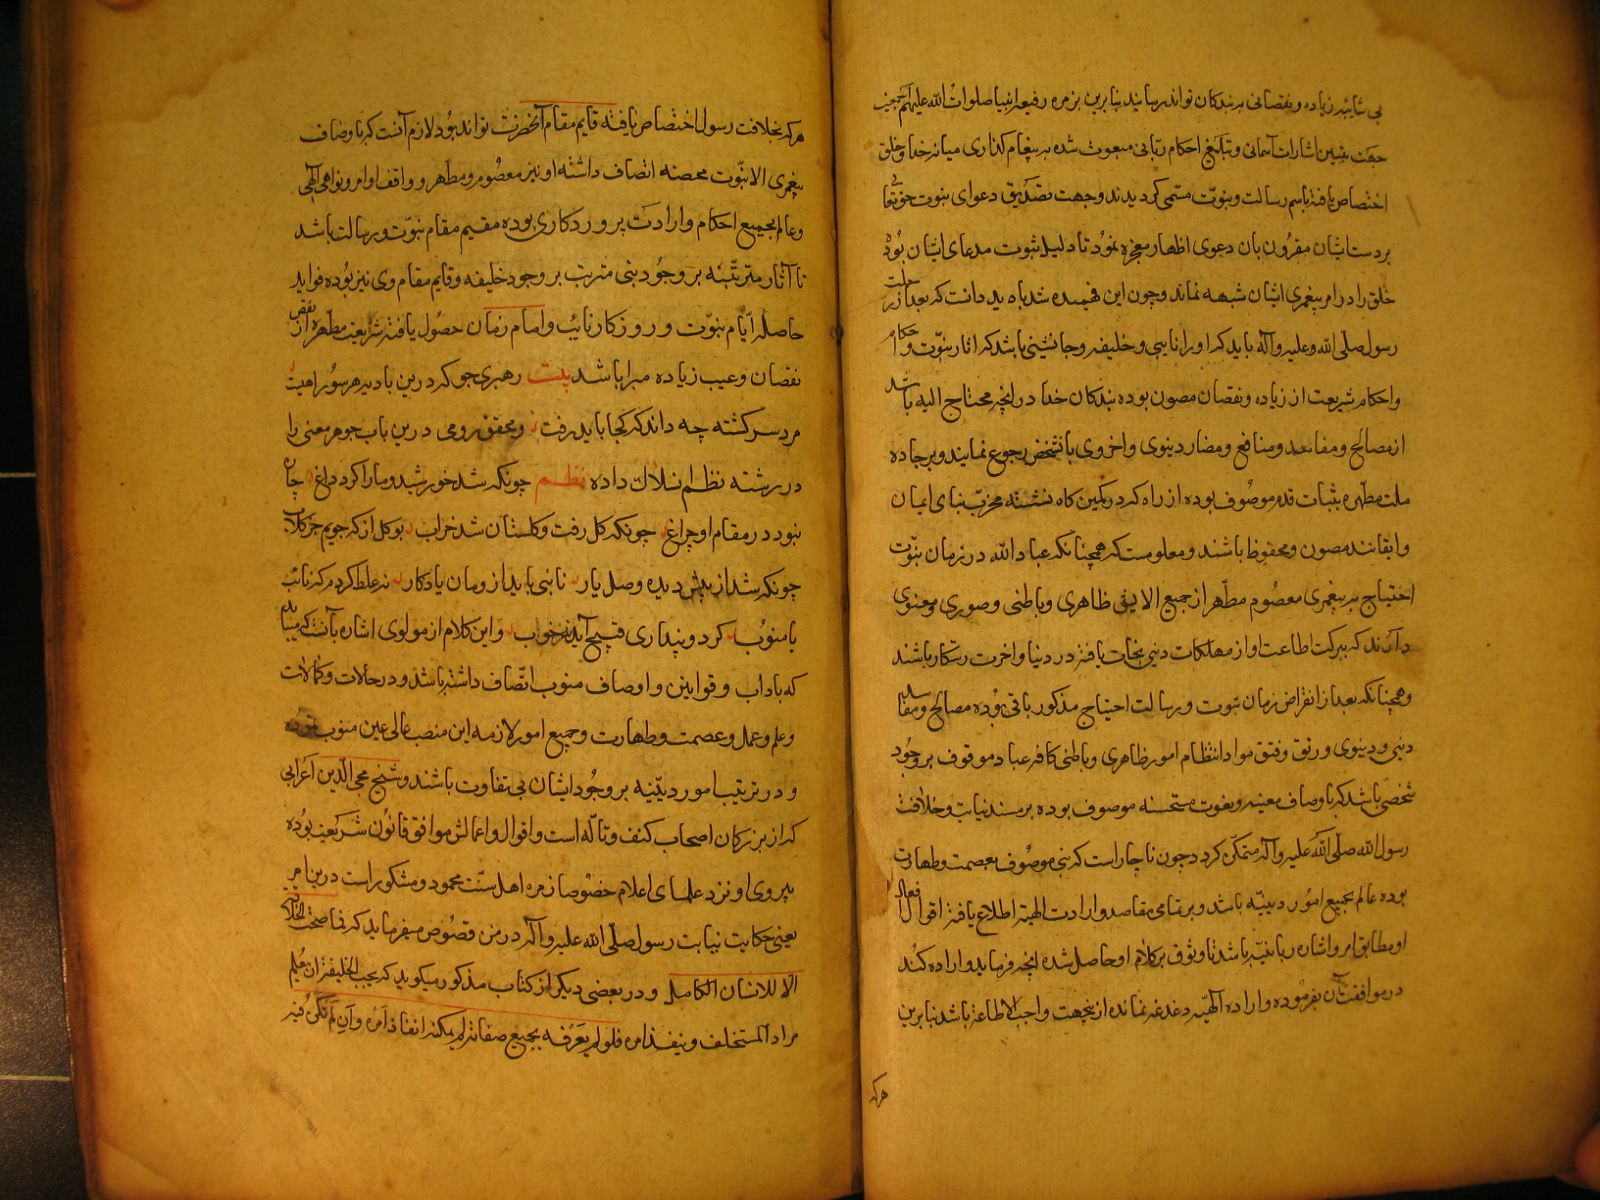 بی شایبه زیاده و نقصانی به بندکان تواند رسانید بنابرین بزمره رفیعه انبیا صلوات الله علیهم اجمعین
جهت تبیین اشارات آسمانی و تبلیغ احکام ربانی مبعوث شده به پیغام کذاری میانه خدا و خلق
اختصاص یافته باسم رسالت و نبوت مسمی کردیدند و جهت تصدیق دعوای نبوت حق تعالی
بر دست ایشان مقرون بان دعوی اظهار معجزه نمود تا دلیل ثبوت مدعای ایشان بوده
خلق را در امر پیغمبری ایشان شبهه نماند و چون این فهمیده شد باید دانست که بعد از رحلت
رسول صلی الله علیه و آله باید که او را نایبی و خلیفه و جانشینی باشد که اثار نبوت و احکام
و احکام شریعت از زیاده و نقصان مصون بوده بندکان خدا در انچه محتاج الیه باشند
از مصالح و مفاسد و منافع و مضار دینوی و اخروی با نشخص رجوع نمایند و بر جاده
ملت مطهره بثبات قدم موصوف بوده از راه که در کمین کاه نشسته مخرب بنای ایمان
و ایقانند مصون و محفوظ باشند و معلومست که همچنانکه عباد الله در زمان نبوت
احتیاج به پیغمبری معصوم مطهر از جمیع الایش ظاهری و باطنی و صوری و معنوی
دارند که ببرکت اطاعت او از مهلکات دینی نجات یافته در دنیا و اخرت رستکار باشند
و همچنانکه بعد از انقراض زمان نبوت و رسالت احتیاج مذکور باقی بوده مصالح و مفاسد
دینی و دینوی و رتق و فتق مواد انتظام امور ظاهری و باطنی کافه عباد موقوف بر وجود
شخصی باشد که باوصاف معینه و نعوت مستحسنه موصوف بوده بر مسند نیابت و خلافت
رسول الله صلی الله علیه و آله متمکن کردد چون ناچار است که نبی موصوف بعصمت و طهارت
بوده عالم بجمیع امور دینیه باشد و بر تمامی مقاصد و ارادت الهیه اطلاع یافته اقوال و افعال
او مطابق امر و اشاره ربانیه باشد تا وثوق بر کلام او حاصل شده انچه فرماید و اراده کند
در موافقت آن بفرموده و اراده الهیه دغدغه نمانده از ینجهت واجب الاطاعة باشد بنابرین
هر که
هر که بخلافت رسول اختصاص یافته قایم مقام آنحضرت تواند بود لازم آنست که باوصاف
پیغمبری الا نبوت محصنه اتصاف داشته او نیز معصوم و مطهر و واقف اوامر و نواهی الهی
و عالم بجمیع احکام و ارادت پروردکاری بوده مقیم مقام نبوت و رسالت باشد
تا آثار مترتبه بر وجود نبی مترتب بر وجود خلیفه و قایم مقام وی نیز بوده فواید
حاصله ایام نبوت و روزکار نائب و امام زمان حصول یافته شریعت مطهره از نقص
نقصان و عیب زیاده مبرا باشد بیت رهبری جو که درین بادیه هر سو راهیست
مرد سرکشته چه داند که کجا باید رفت و محقق رومی درین باب جوهر معنی را
در رشته نظم انسلاک داده نظم چونکه شد خورشید و ما را کرد داغ چاره
نبود در مقام او چراغ چونکه کل رفت و کلستان شد خراب بوی کل از که جویم جز کلاب
چونکه شد از پیش دیده وصل یار نائبی باید ازو مان یادکار نه غلط کردم که نائب
با منوب کرد و پنداری قبیح آید نه خوب و این کلام از مولوی اشاره بآنست که نایب میباید
که باداب و قوانین و اوصاف منوب اتصاف داشته باشد و در حالات و کمالات
و علم و عمل و عصمت و طهارت و جمیع امور لازمه این منصب عالی عین منوب بوده
و در ترتیب امور دینیه بر وجود ایشان بی تفاوت باشند و شیخ محی الدین اعرابی
که از بزرکان اصحاب کشف و تاله است و اقوال و اعمالش موافق قانون شریعت بوده
پیروی او نزد علمای اعلام خصوصا زمره اهل سنت محمود و مشکور است درین امر
یعنی حکایت نیابت رسول صلی الله علیه و آله در متن فصوص میفرماید که فما صحت الخلافة
الا للانسان الکامل و در بعضی دیکر از کتاب مذکور میکوید که یجب للخلیفة ان یعلم
مراد المستخلف و ینفذ امره فلو لم یعرفه بجمیع صفاته لم یمکنه انفاذ امره و ان لم تکن فیه